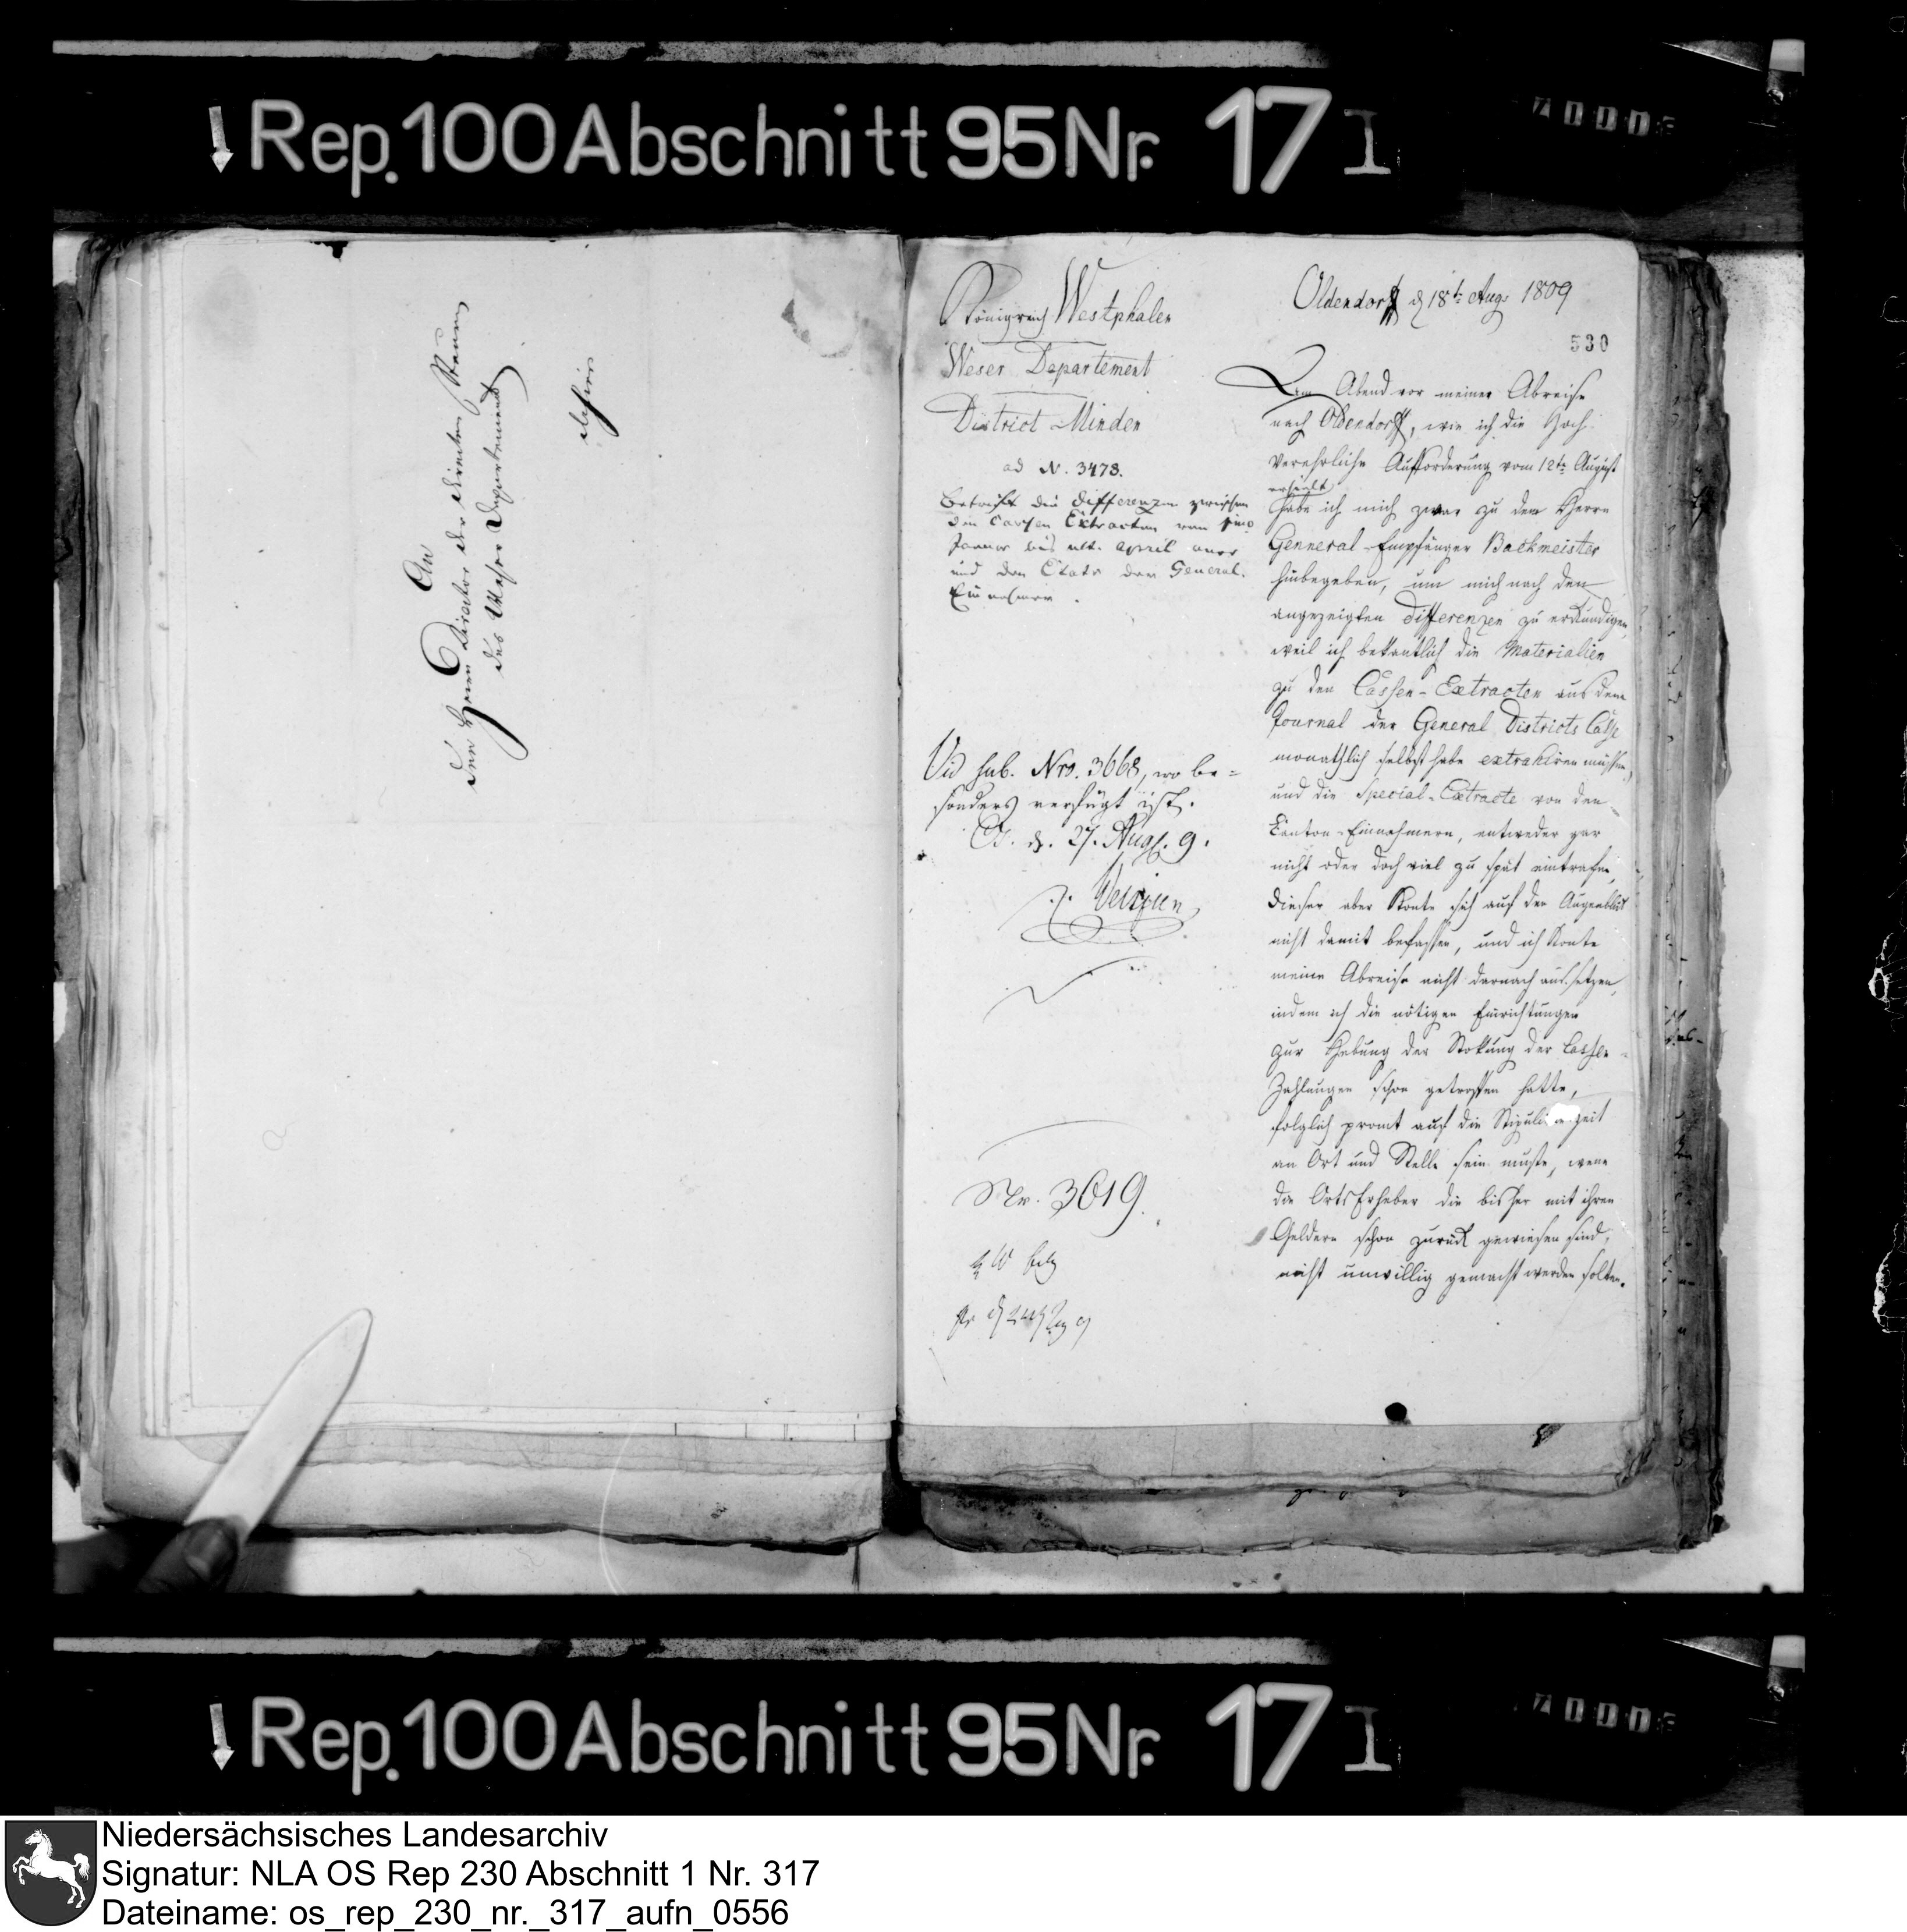 Rep. 100 Abschnitt 95 Nr. 17 I
An
den Herrn Director der directen Steuern
des Weser Departements
hieselbst
Königreich Westphalen
Weser Departement
District Minden
ad N. 3478.
Betrift die differenzen zwischen
den Cassen Extracten vom 1mo
Januar bis ult. April anni
und den Etats der General-
Einnehmer.
Vid sub. Nro. 3668, wo be=
sonders verfügt ist.
Os. d. 27. Augs. 9.
v. Vezin
Nr. 3619.
Oldendorff d 18t. Augs 1809
530
Am Abend vor meiner Abreise
nach Oldendorff, wie ich die Hoch-
verehrliche Aufforderung vom 12te August
erhielt
habe ich mich zwar zu dem Herrn
Genneral-Empfänger Backmeister
hinbegeben, um mich nach den
angezeigten differenzen zu erkundigen,
weil ich bekantlich die Materialien
zu den Cassen-Extracten aus dem
Journal der General Districts Casse
monathlich selbst habe extrahiren müssen,
und die Special-Extracte von den
Canton-Einnehmern, entweder gar
nicht oder doch viel zu spät eintrafen,
dieser aber konte sich auf den Augenblick
nicht damit befassen, und ich konte
meine Abreise nicht darnach aussetzen,
indem ich die nötigen Einrichtungen
zur Hebung der Stokung der Cassen-
Zahlungen schon getroffen hatte,
folglich promt auf die Zeit
an Ort und Stelle sein muste, wenn
die OrtsErheber die bisher mit ihren
Geldern schon zurück gewiesen sind,
nicht unwillig gemacht werden solten.
Rep. 100 Abschnitt 95 Nr. 17 I
Niedersächsisches Landesarchiv
Signatur: NLA OS Rep 230 Abschnitt 1 Nr. 317
Dateiname: os_rep_230_nr._317_aufn_0556